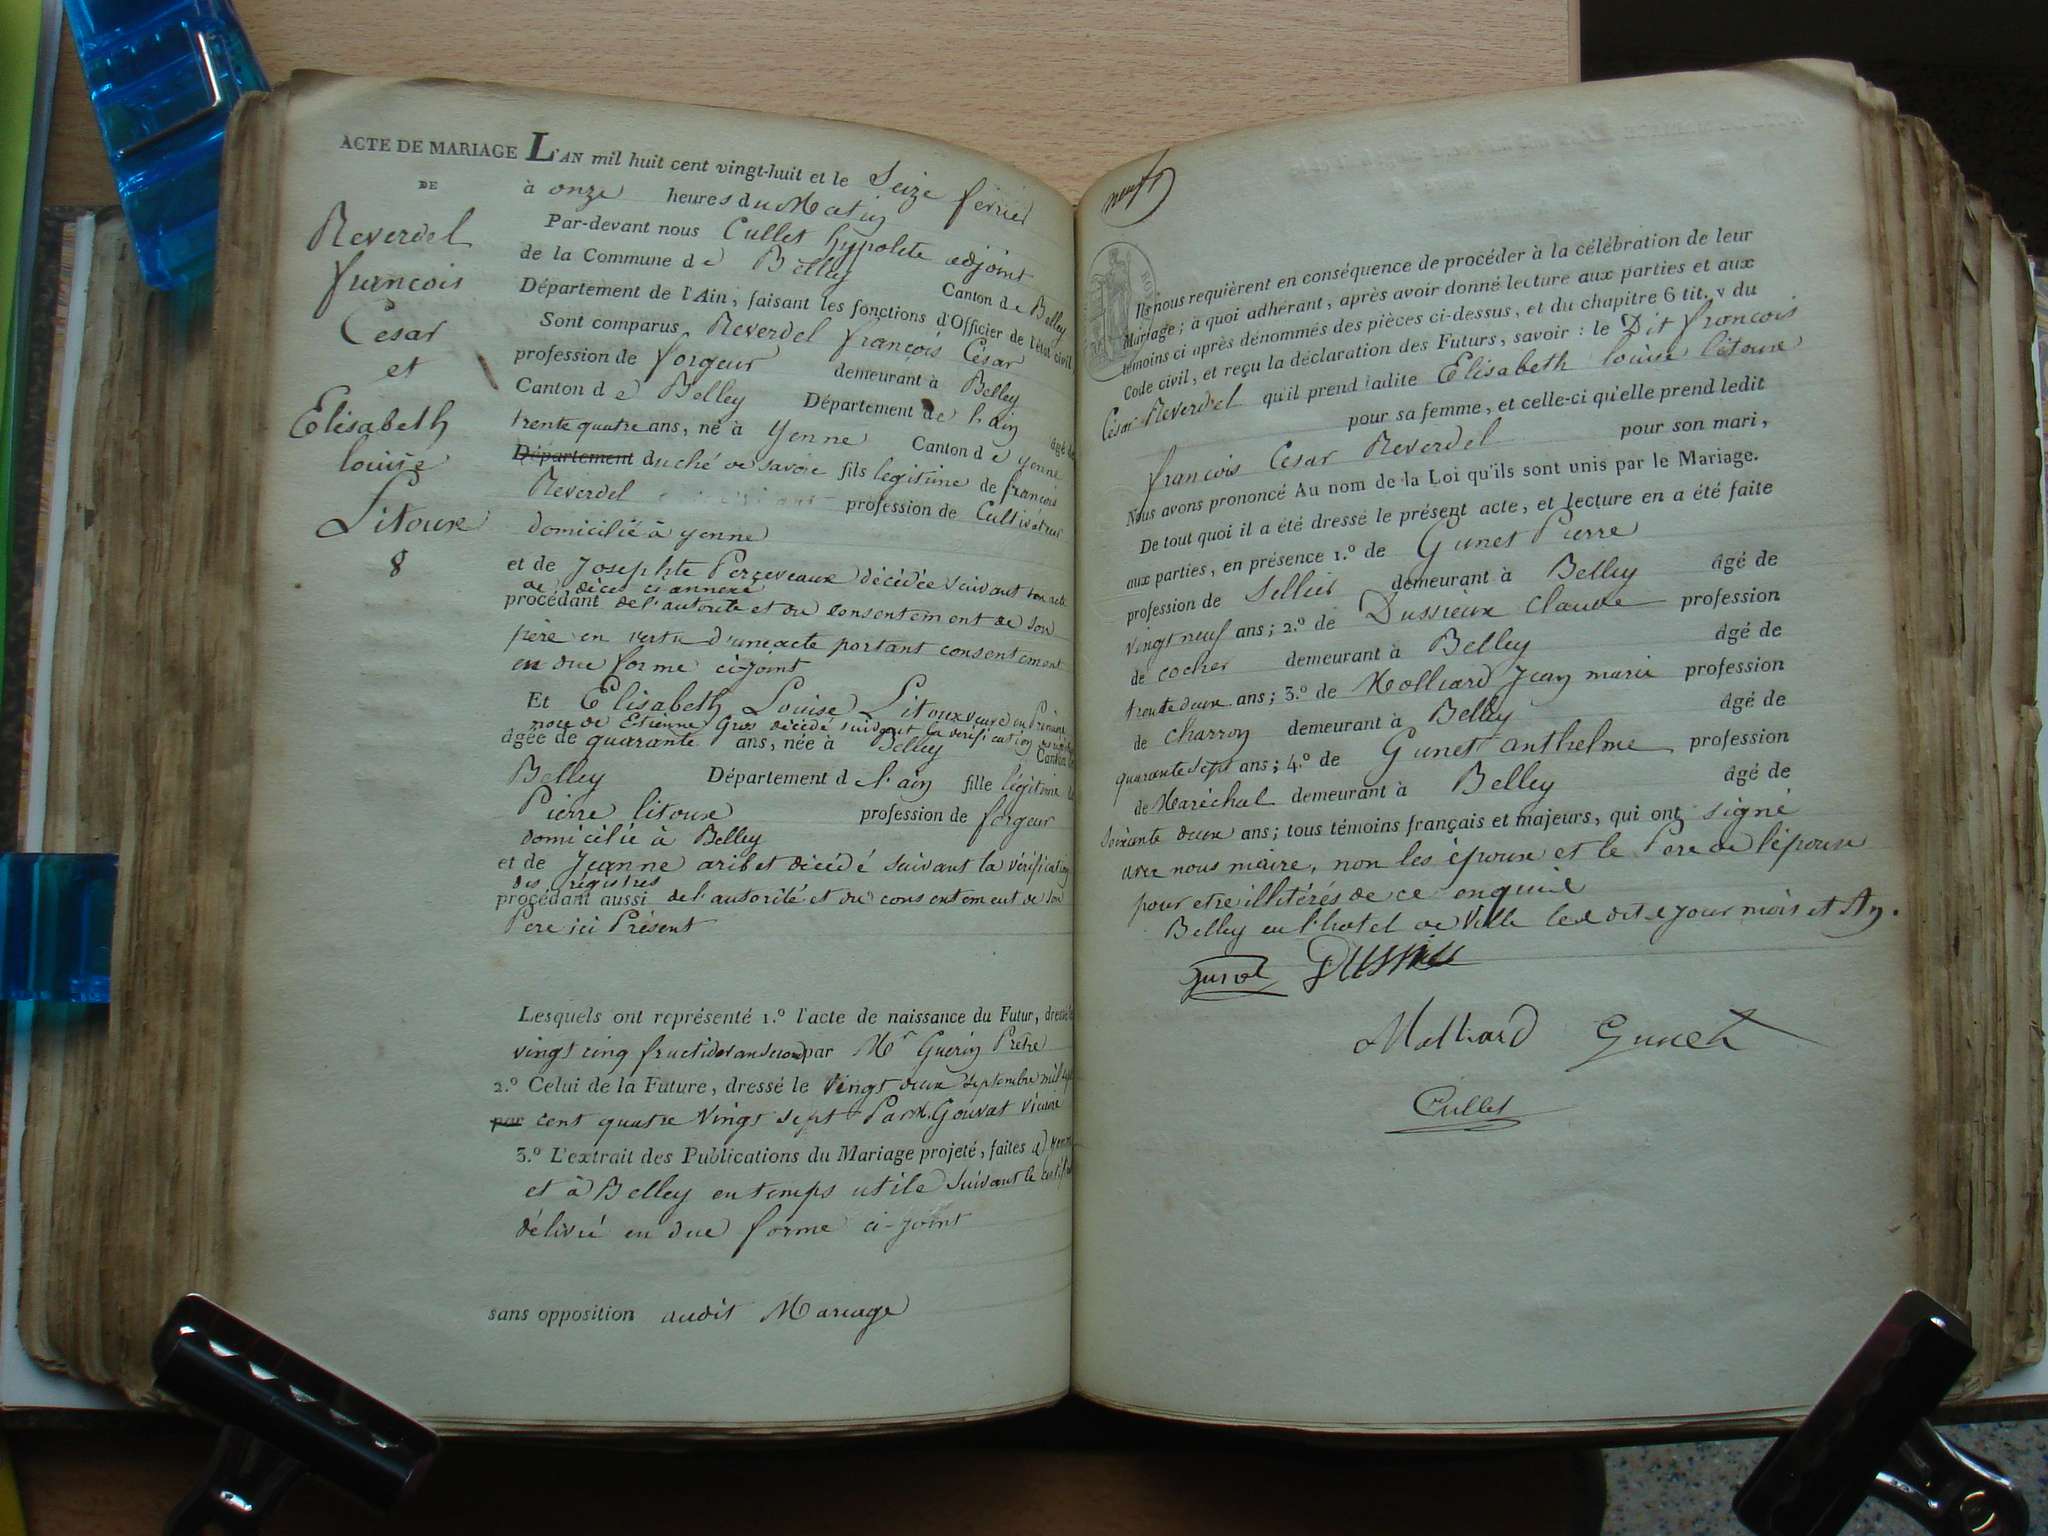 ACTE DE MARIAGE
DE
Reverdel
francois
Cesar
et
Elisabeth
louise
Litoux
8
L'AN mil huit cent vingt-huit et le Seize fevrier
à onze heures du Matin
Par-devant nous Cullet hyppolite adjoint
de la Commune de Belley Canton de Belley
Département de l'Ain, faisant les fonctions d'Officier de l'état civil,
Sont comparus Reverdel françois César
profession de forgeur demeurant à Belley
Canton de Belley Département de l'ain âgé de
trente quatre ans, né à Yenne Canton de yenne
Département duché de savoie fils légitime de françois
Reverdel profession de Cultivateur
domicilié à yenne
et de Josephte Perceveaux décédée suivant son acte
de décès ci annexé
procédant de l'autorité et du consentement de son
père en vertu d'une acte portant consentement
en due forme ci-joint
Et Elisabeth Louise Litoux veuve en Premiere
noce de Etienne Gros décédé suivant la vérification
âgée de quarante ans, née à Belley Canton de
Belley Département de l'ain fille légitime de
Pierre litoux profession de forgeur
domicilié à Belley
et de Jeanne aribet décédé suivant la vérification
des régistres
procédant aussi de l'autorité et du consentement de son
Pere ici Présent
Lesquels ont représenté 1.° l'acte de naissance du Futur, dressé le
vingt cinq fructidor an second par Mr Guerin Prêtre
2.° Celui de la Future, dressé le vingt deux septembre mil sept
par cent quatre vingt sept Par M. Gouvat vicaire
3.° L'extrait des Publications du Mariage projeté, faites à Yenne
et à Belley en temps utile suivant le certificat
délivré en due forme ci-joint
sans opposition audit Mariage
neuf
Ils nous requièrent en conséquence de procéder à la célébration de leur
Mariage; à quoi adhérant, après avoir donné lecture aux parties et aux
témoins ci après dénommés des pièces ci-dessus, et du chapitre 6 tit. v du
Code civil, et reçu la déclaration des Futurs, savoir : le Dit françois
César Reverdel qu'il prend ladite Elisabeth louise litoux
pour sa femme, et celle-ci qu'elle prend ledit
françois Cesar Reverdel pour son mari,
Nous avons prononcé Au nom de la Loi qu'ils sont unis par le Mariage.
De tout quoi il a été dressé le présent acte, et lecture en a été faite
aux parties, en présence 1.° de Gunet Pierre
profession de Sellier demeurant à Belley âgé de
vingt neuf ans; 2.° de Dussieux Claude profession
de cocher demeurant à Belley âgé de
trente deux ans; 3.° de Molliard Jean marie profession
de charron demeurant à Belley âgé de
quarante sept ans; 4.° de Gunet anthelme profession
de Maréchal demeurant à Belley âgé de
Soixante deux ans; tous témoins français et majeurs, qui ont signé
avec nous maire, non les époux et le Pere de l'épouse
pour etre illitérés de ce enquis
Belley en l'hotel de Ville les dits jour mois et An.
Gunet
Molliard Gunet
Cullet